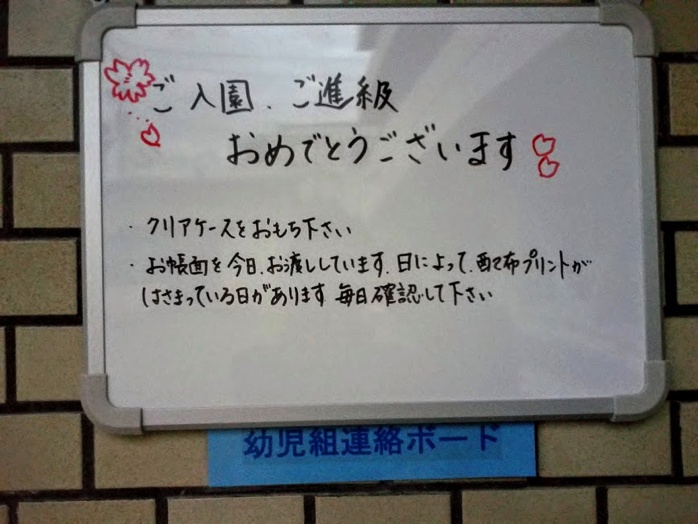 ご入園、ご進級
おめでとうございます
・クリアケースをおもち下さい
・お帳面を今日、お渡ししています。日によって、配布プリントが
はさまっている日があります 毎日確認して下さい
幼児組連絡ボード